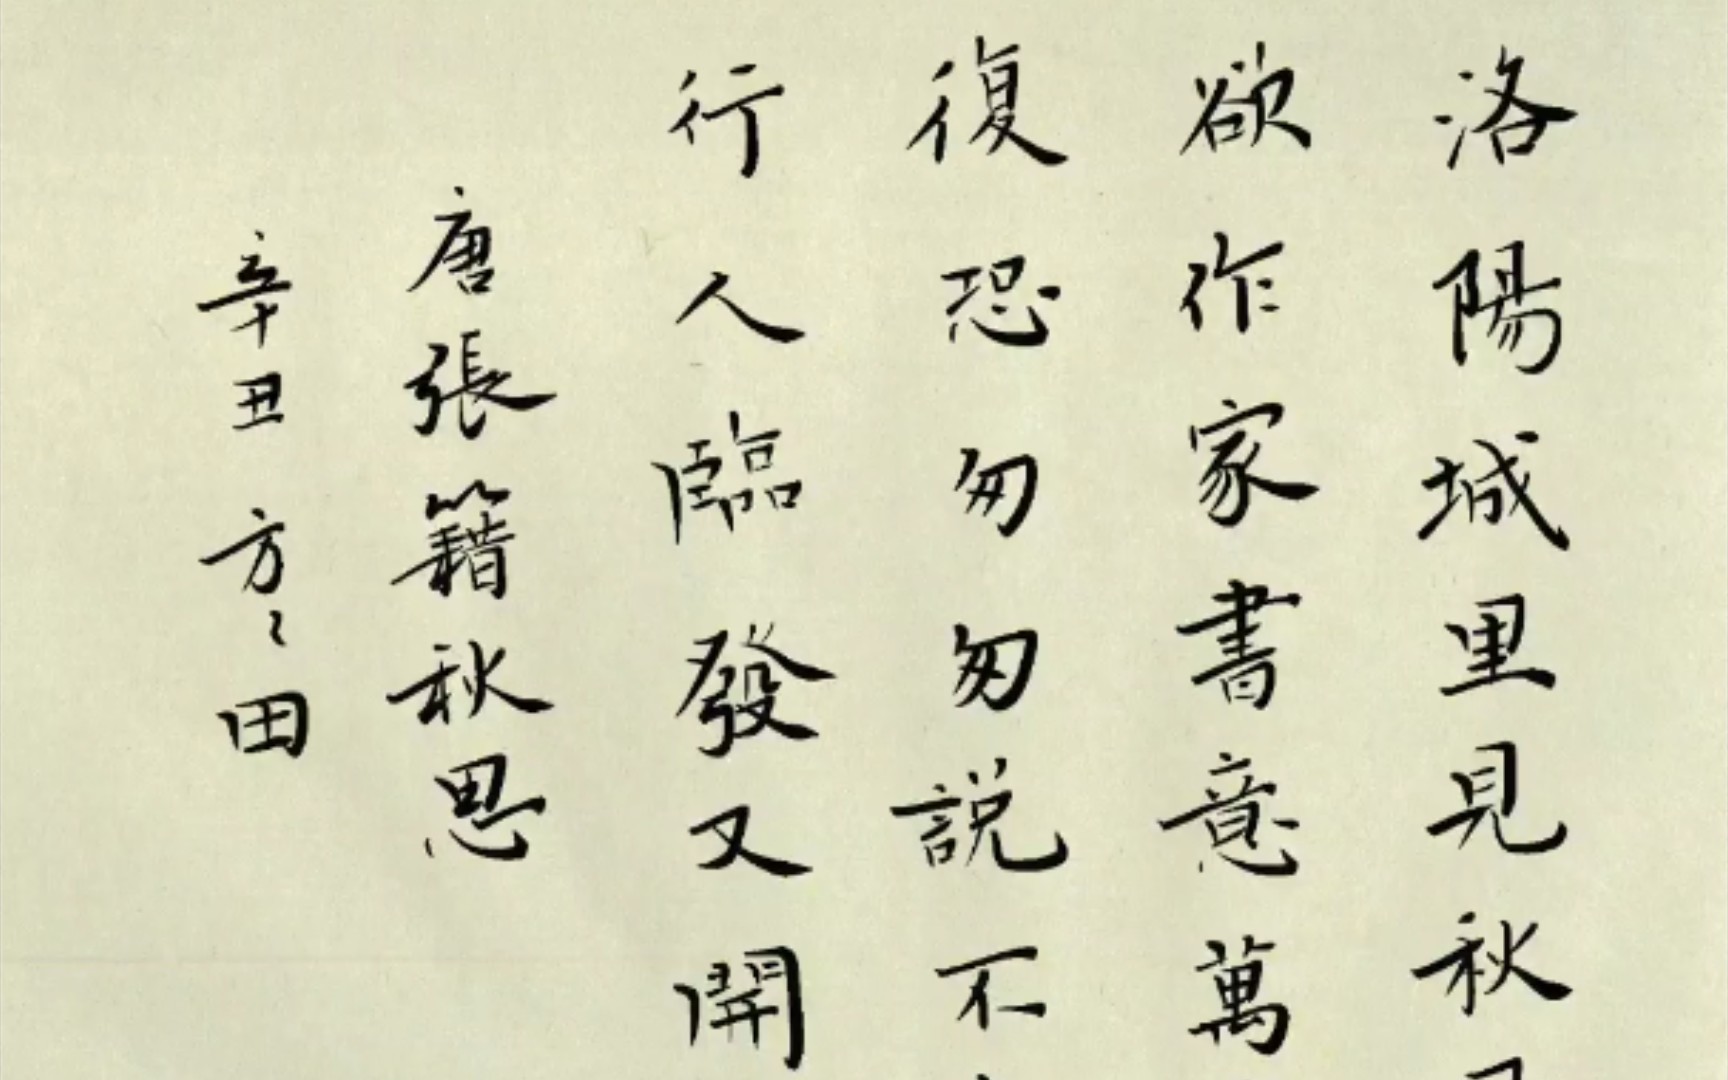 洛陽城里見秋
欲作家書意萬
復恐匆匆説不
行人臨發又開
唐張籍秋思
辛丑方〻田